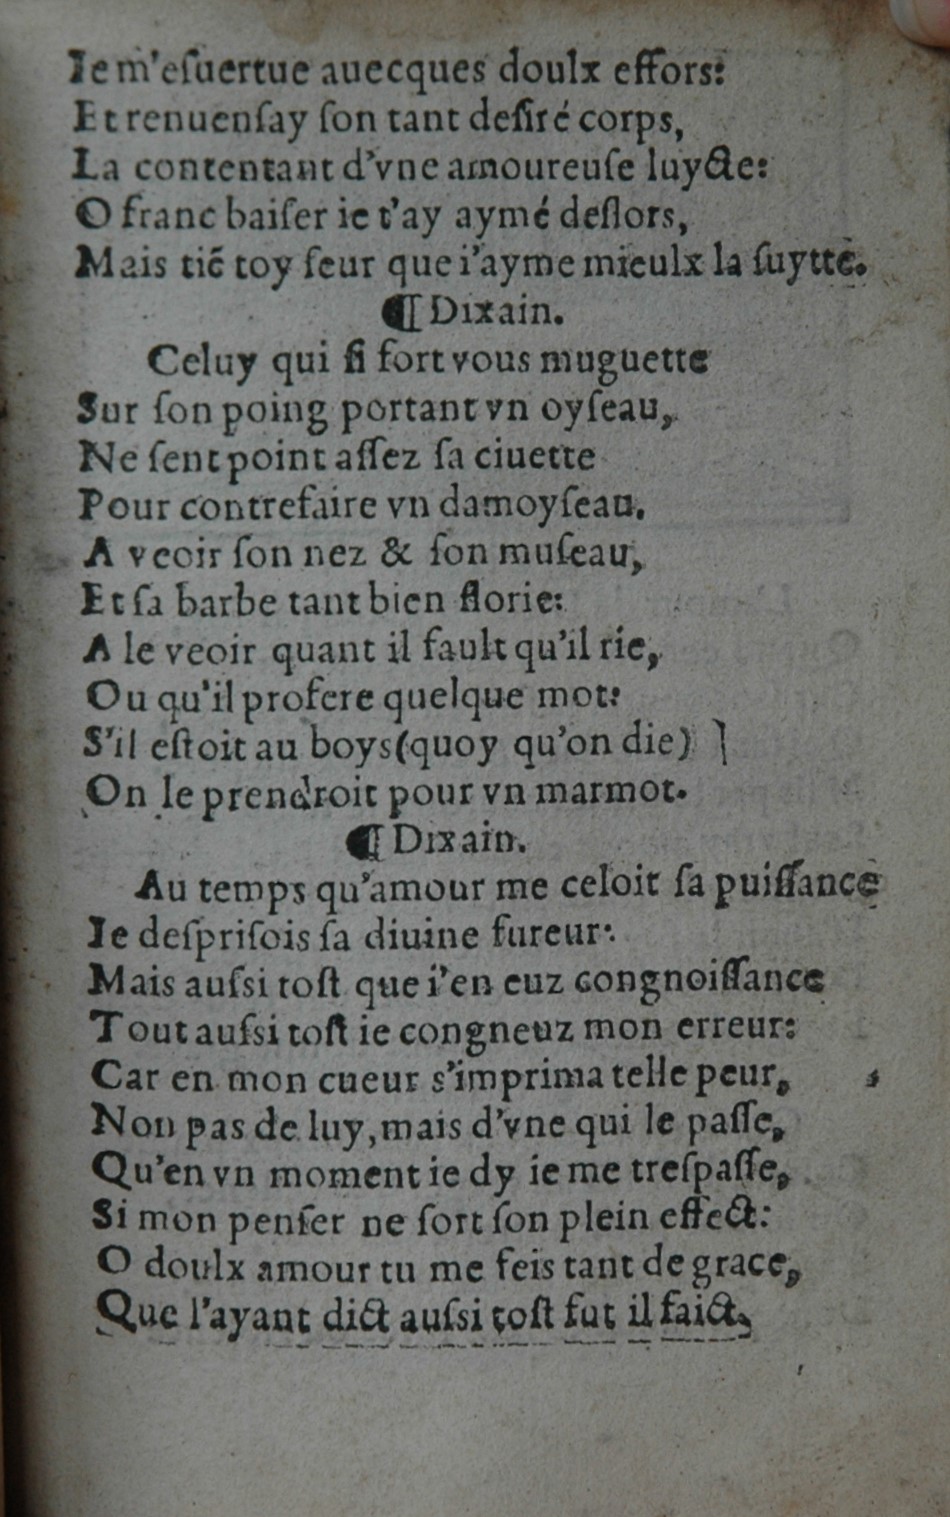 Ie m'eſuertue auecques doulx effors:
Et renuenſay ſon tant deſiré corps,
La contentant d'vne amoureuſe luycte:
O franc baiſer ie t'ay aymé deſlors,
Mais tiẽ toy ſeur que i'ayme mieulx la ſuytte.
¶ Dixain.
Celuy qui ſi fort vous muguette
Sur ſon poing portant vn oyſeau,
Ne ſent point aſſez ſa ciuette
Pour contrefaire vn damoyſeau.
A veoir ſon nez & ſon muſeau,
Et ſa barbe tant bien florie:
A le veoir quant il fault qu'il rie,
Ou qu'il profere quelque mot:
S'il eſtoit au boys (quoy qu'on die)
On le prendroit pour vn marmot.
¶ Dixain.
Au temps qu'amour me celoit ſa puiſſance
Ie deſpriſois ſa diuine fureur:
Mais auſsi toſt que i'en euz congnoiſſance
Tout auſsi toſt ie congneuz mon erreur:
Car en mon cueur s'imprima telle peur,
Non pas de luy, mais d'vne qui le paſſe,
Qu'en vn moment ie dy ie me treſpaſſe,
Si mon penſer ne ſort ſon plein effect:
O doulx amour tu me feis tant de grace,
Que l'ayant dict auſsi toſt fut il faict.